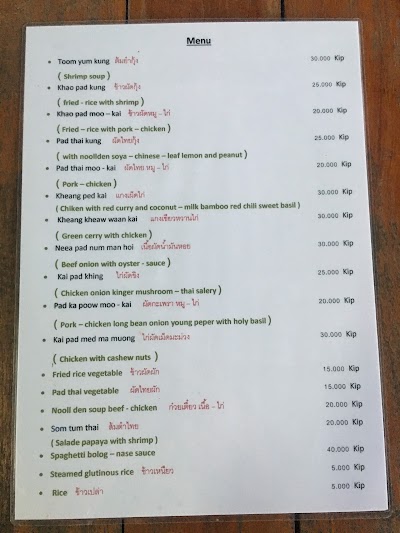 Menu
Toom yum kung ต้มยำกุ้ง 30.000 Kip
( Shrimp soup )
Khao pad kung ข้าวผัดกุ้ง 25.000 Kip
( fried - rice with shrimp )
Khao pad moo – kai ข้าวผัดหมู – ไก่ 20.000 Kip
( Fried – rice with pork – chicken )
Pad thai kung ผัดไทยกุ้ง 25.000 Kip
( with noollden soya – chinese – leaf lemon and peanut )
Pad thai moo - kai ผัดไทย หมู – ไก่ 20.000 Kip
( Pork – chicken )
Kheang ped kai แกงเผ็ดไก่ 30.000 Kip
( Chiken with red curry and coconut – milk bamboo red chili sweet basil )
Kheang kheaw waan kai แกงเขียวหวานไก่ 30.000 Kip
( Green cerry with chicken )
Neea pad num man hoi เนื้อผัดน้ำมันหอย 30.000 Kip
( Beef onion with oyster - sauce )
Kai pad khing ไก่ผัดขิง 25.000 Kip
( Chicken onion kinger mushroom – thai salery )
Pad ka poow moo - kai ผัดกะเพรา หมู – ไก่ 20.000 Kip
( Pork – chicken long bean onion young peper with holy basil )
Kai pad med ma muong ไก่ผัดเม็ดมะม่วง 30.000 Kip
( Chicken with cashew nuts )
Fried rice vegetable ข้าวผัดผัก 15.000 Kip
Pad thai vegetable ผัดไทยผัก 15.000 Kip
Nooll den soup beef - chicken ก๋วยเตี๋ยว เนื้อ – ไก่ 20.000 Kip
Som tum thai ส้มตำไทย 20.000 Kip
( Salade papaya with shrimp )
Spaghetti bolog – nase sauce 40.000 Kip
Steamed glutinous rice ข้าวเหนียว 5.000 Kip
Rice ข้าวเปล่า 5.000 Kip